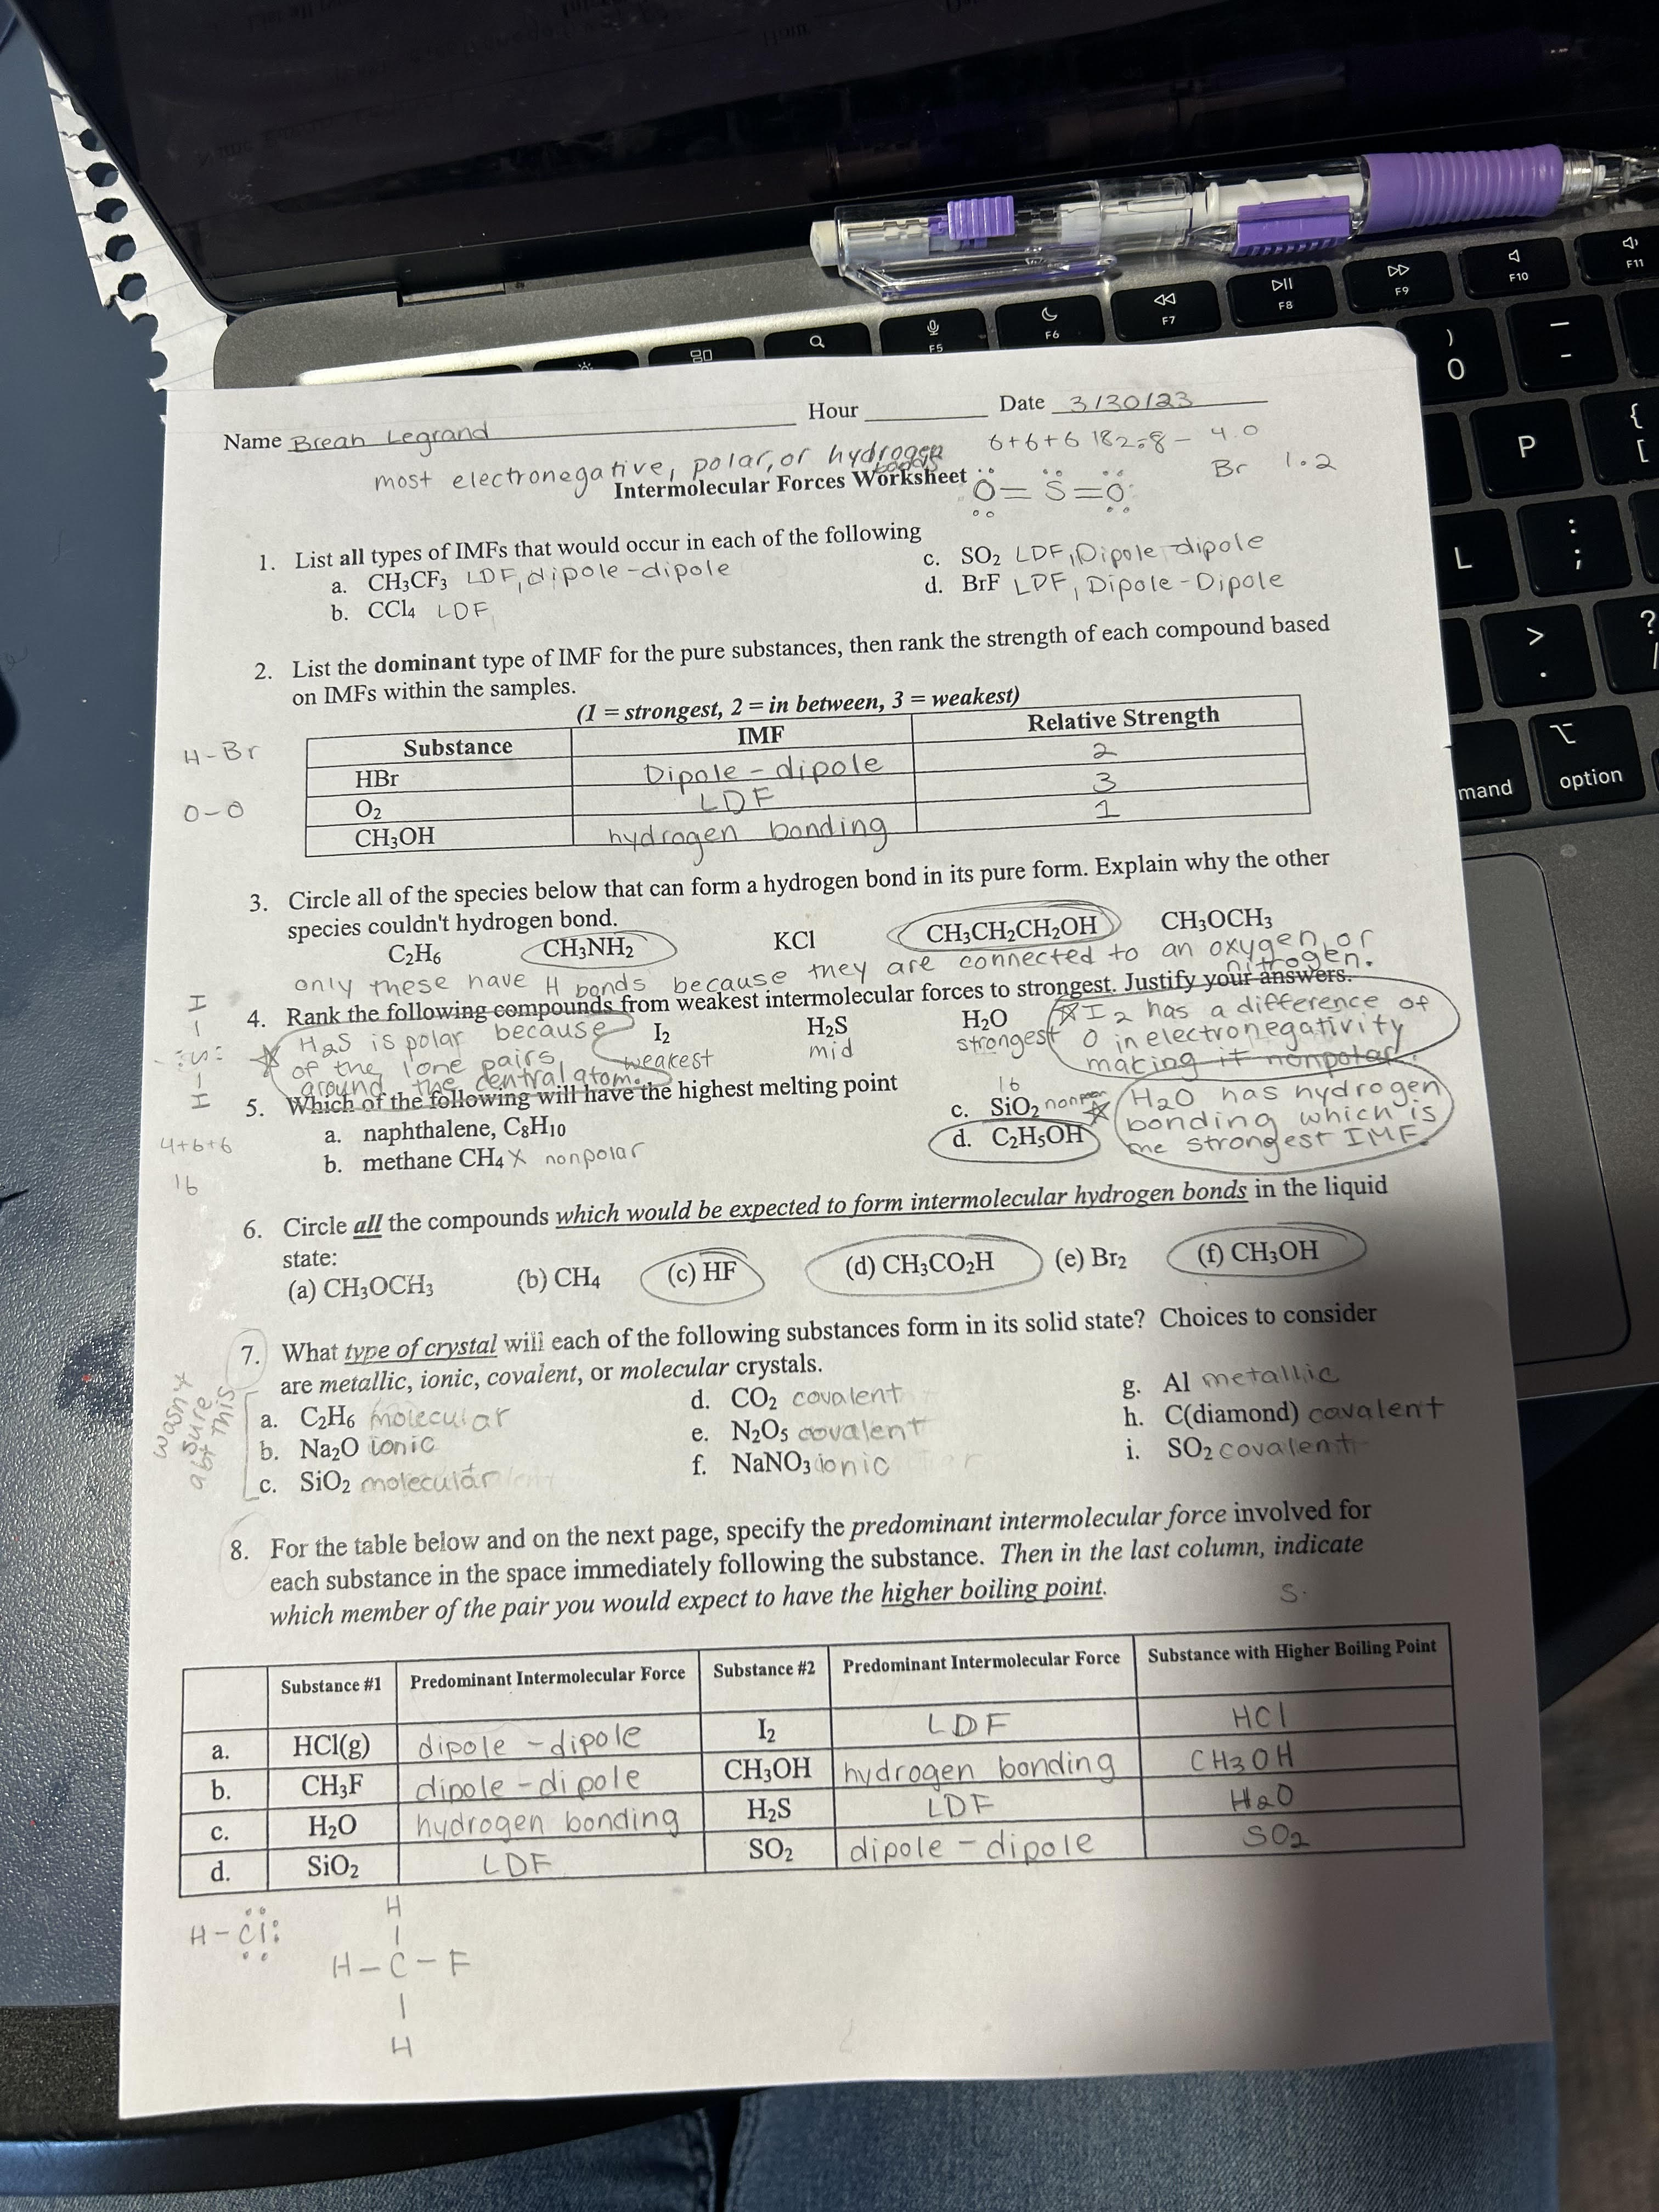 F5
F6
F7
F8
F9
F10
F11
)
0
P
{
[
L
:
;
>
.
?
/
mand
option
Hour
Date 3/30/23
Name Breah Legrand
most electronegative, polar, or hydrogen bonds
6+6+6 18
4.0
Br 1.2
Intermolecular Forces Worksheet
O=S=O
1. List all types of IMFs that would occur in each of the following
a. CH3CF3 LDF, dipole-dipole
b. CCl4 LDF
c. SO2 LDF, Dipole dipole
d. BrF LDF, Dipole-Dipole
2. List the dominant type of IMF for the pure substances, then rank the strength of each compound based
on IMFs within the samples.
(1 = strongest, 2 = in between, 3 = weakest)
Substance IMF Relative Strength
H-Br
HBr Dipole-dipole 2
O-O
O2 LDF 3
CH3OH hydrogen bonding 1
3. Circle all of the species below that can form a hydrogen bond in its pure form. Explain why the other
species couldn't hydrogen bond.
C2H6 CH3NH2 KCl CH3CH2CH2OH CH3OCH3
only these have H bonds because they are connected to an oxygen or
nitrogen.
4. Rank the following compounds from weakest intermolecular forces to strongest. Justify your answers.
I2 H2S H2O
weakest mid strongest
H2S is polar because
of the lone pairs
around the central atom.
I2 has a difference of
0 in electronegativity
making it nonpolar.
H-S-H
H2O has hydrogen
bonding which is
the strongest IMF.
5. Which of the following will have the highest melting point
a. naphthalene, C8H10
b. methane CH4 X nonpolar
16
c. SiO2
d. C2H5OH
4+6+6
16
6. Circle all the compounds which would be expected to form intermolecular hydrogen bonds in the liquid
state:
(a) CH3OCH3 (b) CH4 (c) HF (d) CH3CO2H (e) Br2 (f) CH3OH
7. What type of crystal will each of the following substances form in its solid state? Choices to consider
are metallic, ionic, covalent, or molecular crystals.
wasn't
sure
abt this
a. C2H6 molecular
b. Na2O ionic
c. SiO2 molecular
d. CO2 covalent
e. N2O5 covalent
f. NaNO3 ionic
g. Al metallic
h. C(diamond) covalent
i. SO2 covalent
8. For the table below and on the next page, specify the predominant intermolecular force involved for
each substance in the space immediately following the substance. Then in the last column, indicate
which member of the pair you would expect to have the higher boiling point.
S.
Substance #1 Predominant Intermolecular Force Substance #2 Predominant Intermolecular Force Substance with Higher Boiling Point
a. HCl(g) dipole-dipole I2 LDF HCl
b. CH3F dipole-dipole CH3OH hydrogen bonding CH3OH
c. H2O hydrogen bonding H2S LDF H2O
d. SiO2 LDF SO2 dipole-dipole SO2
H-Cl:
H
H-C-F
H